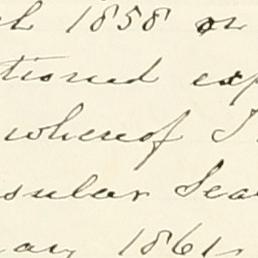 ch 1858 or
tioned exp
whereof I
sular Sea
ary 1861